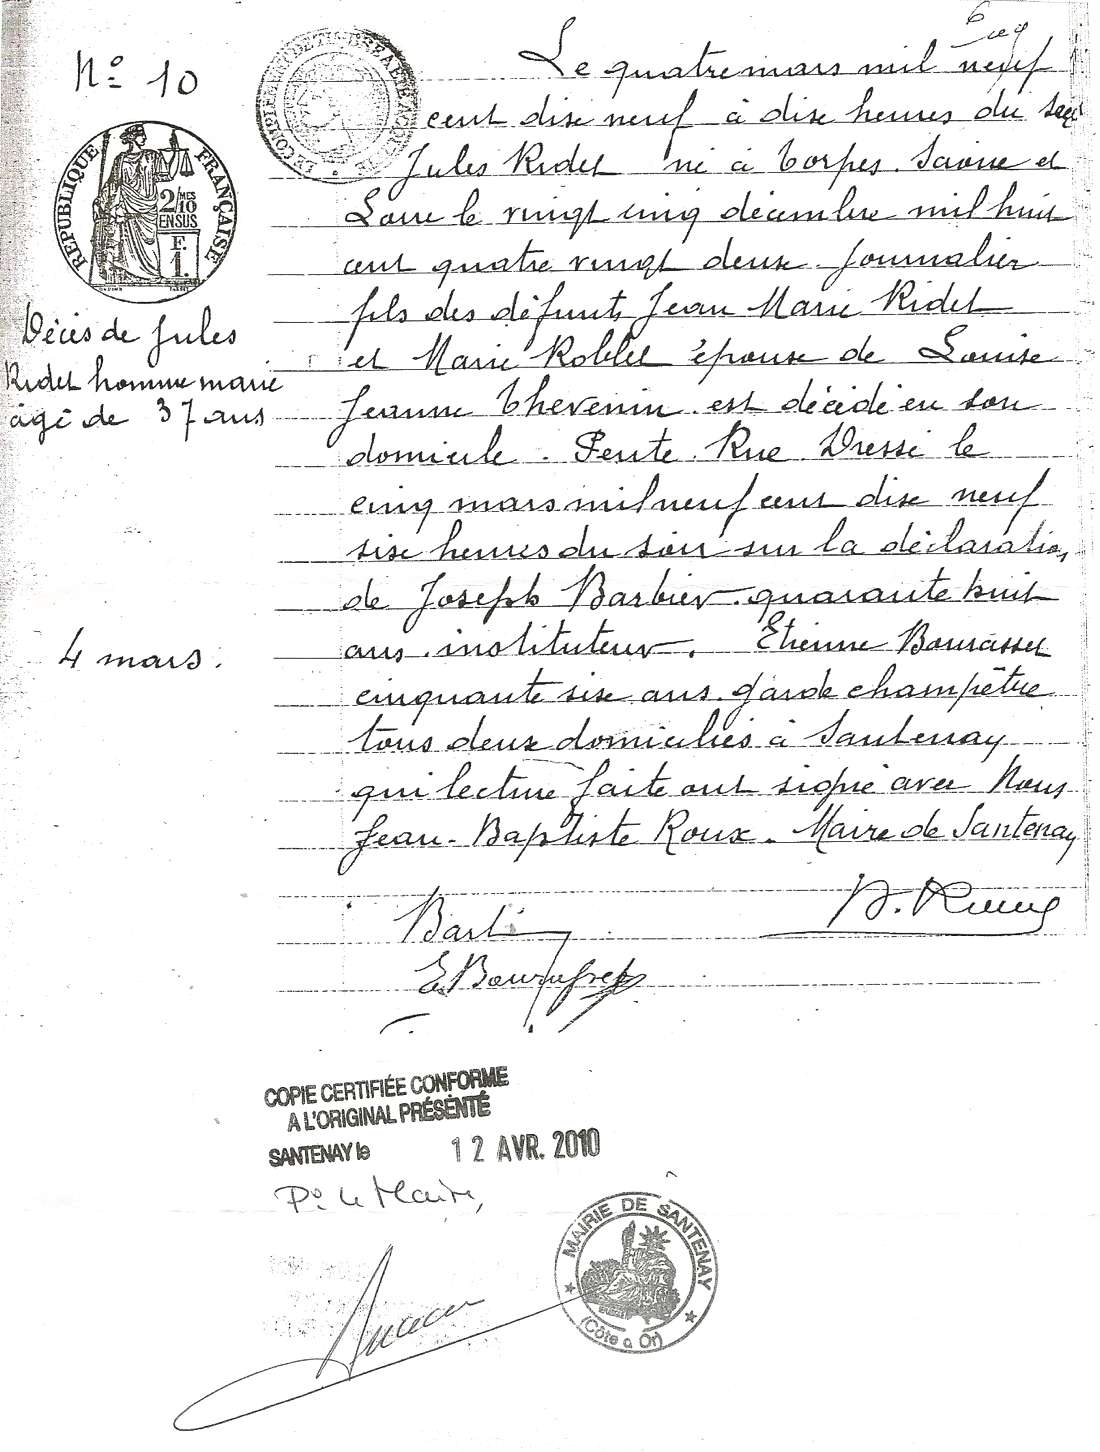 N° 10
RÉPUBLIQUE FRANÇAISE
2/MES
10
EN SUS
F.
1.
Décès de Jules
Ridet homme marié
âgé de 37 ans
4 mars.
Le quatre mars mil neuf
cent dixe neuf à dixe heures du
Jules Ridet né à Torpes. Saône et
Loire le vingt cinq décembre mil huit
cent quatre vingt deux. Journalier
fils des défunts Jean Marie Ridet
et Marie Roblet épouse de Louise
Jeanne Thevenin. est décédé en son
domicile. Rue le
cinq mars mil neuf cent dixe neuf
sixe heures du soir sur la déclaration
de Joseph Barbier. quarante huit
ans. instituteur. Etienne Bourasset
cinquante sixe ans. garde champêtre
tous deux domiciliés à Santenay
qui lecture faite ont signé avec Nous
Jean-Baptiste Roux. Maire de Santenay
B. Roux
COPIE CERTIFIÉE CONFORME
A L'ORIGINAL PRÉSENTÉ
SANTENAY le 12 AVR. 2010
P° Le Maire,
MAIRIE DE SANTENAY
(Côte d'Or)